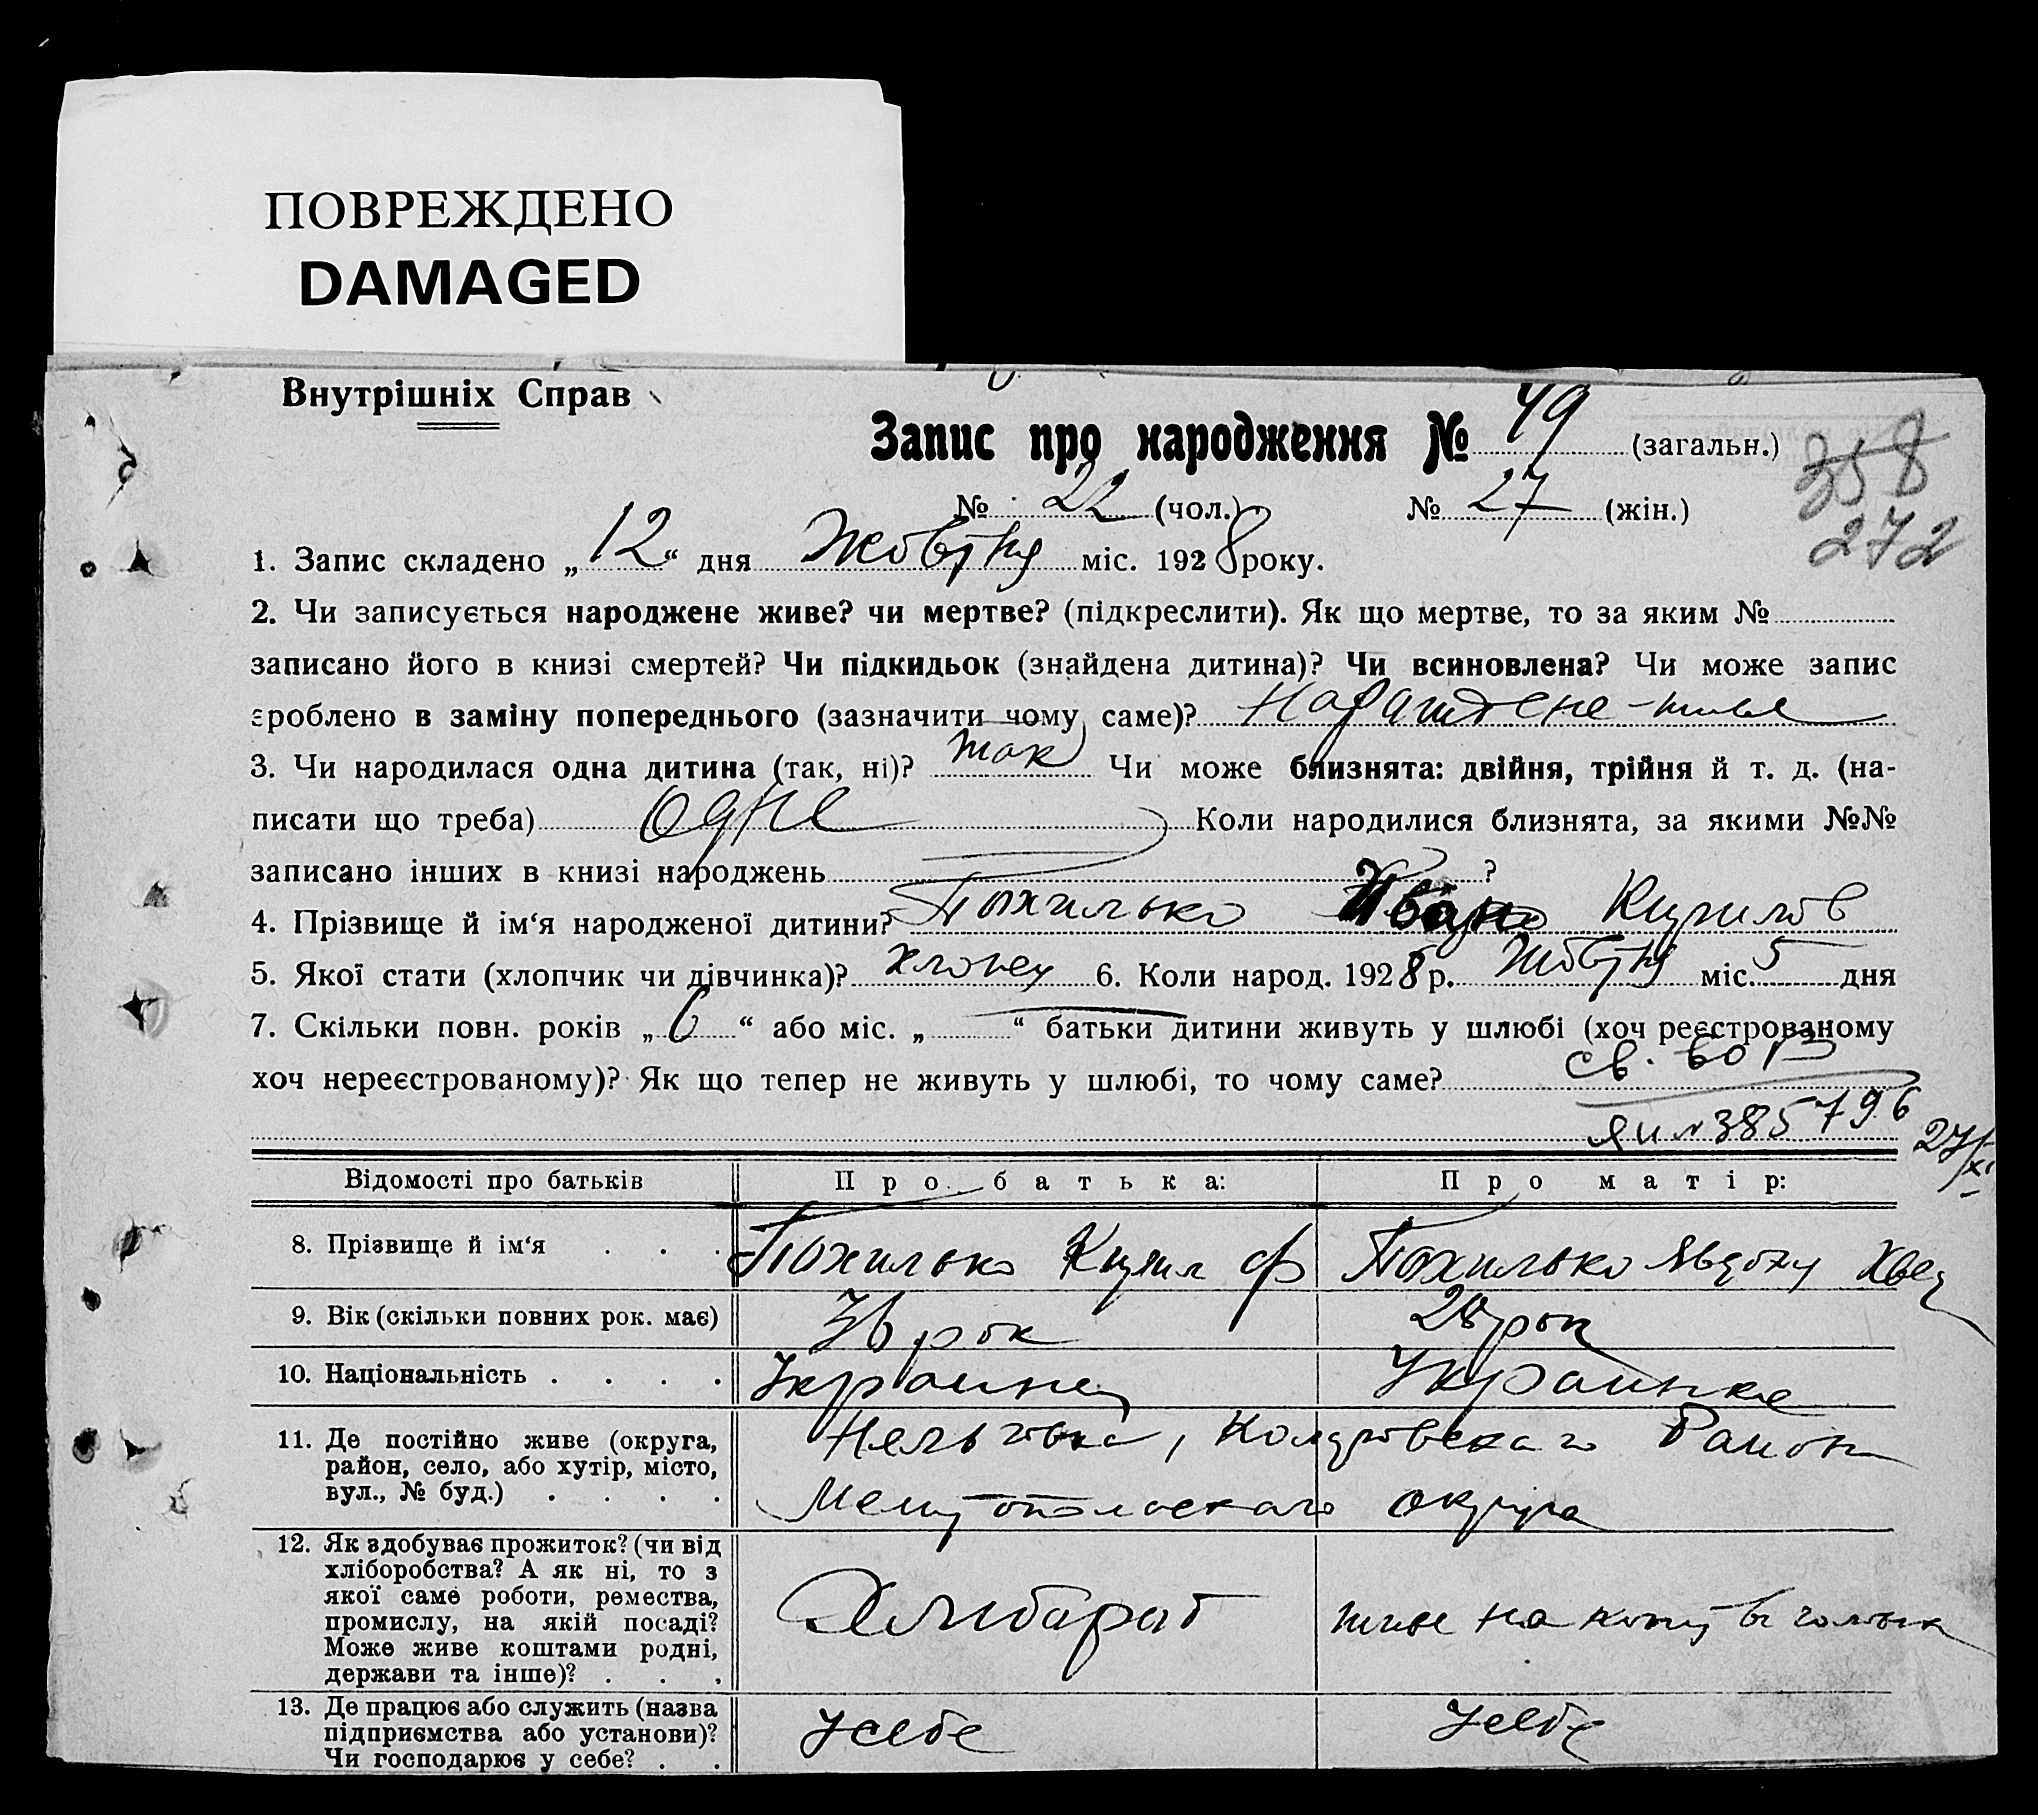 ПОВРЕЖДЕНО
DAMAGED
Внутрішніх Справ
Запис про народження № 49 (загальн.)
358
№ 22 (чол.) № 27 (жін.)
272
1. Запис складено „12“ дня Жовтня міс. 1928 року.
2. Чи записується народжене живе? чи мертве? (підкреслити). Як що мертве, то за яким №
записано його в книзі смертей? Чи підкидьок (знайдена дитина)? Чи всиновлена? Чи може запис
зроблено в заміну попереднього (зазначити чому саме)?
3. Чи народилася одна дитина (так, ні)? так Чи може близнята: двійня, трійня й т. д. (на-
писати що треба) Одне Коли народилися близнята, за якими №№
записано інших в книзі народжень ?
4. Прізвище й ім‘я народженої дитини? Похилько Іван Кирилов
5. Якої стати (хлопчик чи дівчинка)? хлопец 6. Коли народ. 1928 р. Жовтня міс. 5 дня
7. Скільки повн. років „6“ або міс. „ “ батьки дитини живуть у шлюбі (хоч реєстрованому
хоч нереєстрованому)? Як що тепер не живуть у шлюбі, то чому саме? св.
385796
27/XI
Відомості про батьків Про батька: Про матір:
8. Прізвище й ім‘я . . . Похилько Кирил Ф Похилько Явдоху Хвед
9. Вік (скільки повних рок. має) 36 рок 28 рок
10. Національність . . . . Украинец Украинка
11. Де постійно живе (округа,
район, село, або хутір, місто,
вул., № буд.) . . . .
Района
Мелитопольскаго округа
12. Як здобуває прожиток? (чи від
хліборобства? А як ні, то з
якої саме роботи, ремества,
промислу, на якій посаді?
Може живе коштами родні,
держави та інше)? . . .
Хлибароб живе на
13. Де працює або служить (назва
підприємства або установи)?
Чи господарює у себе? . .
У себе У себе